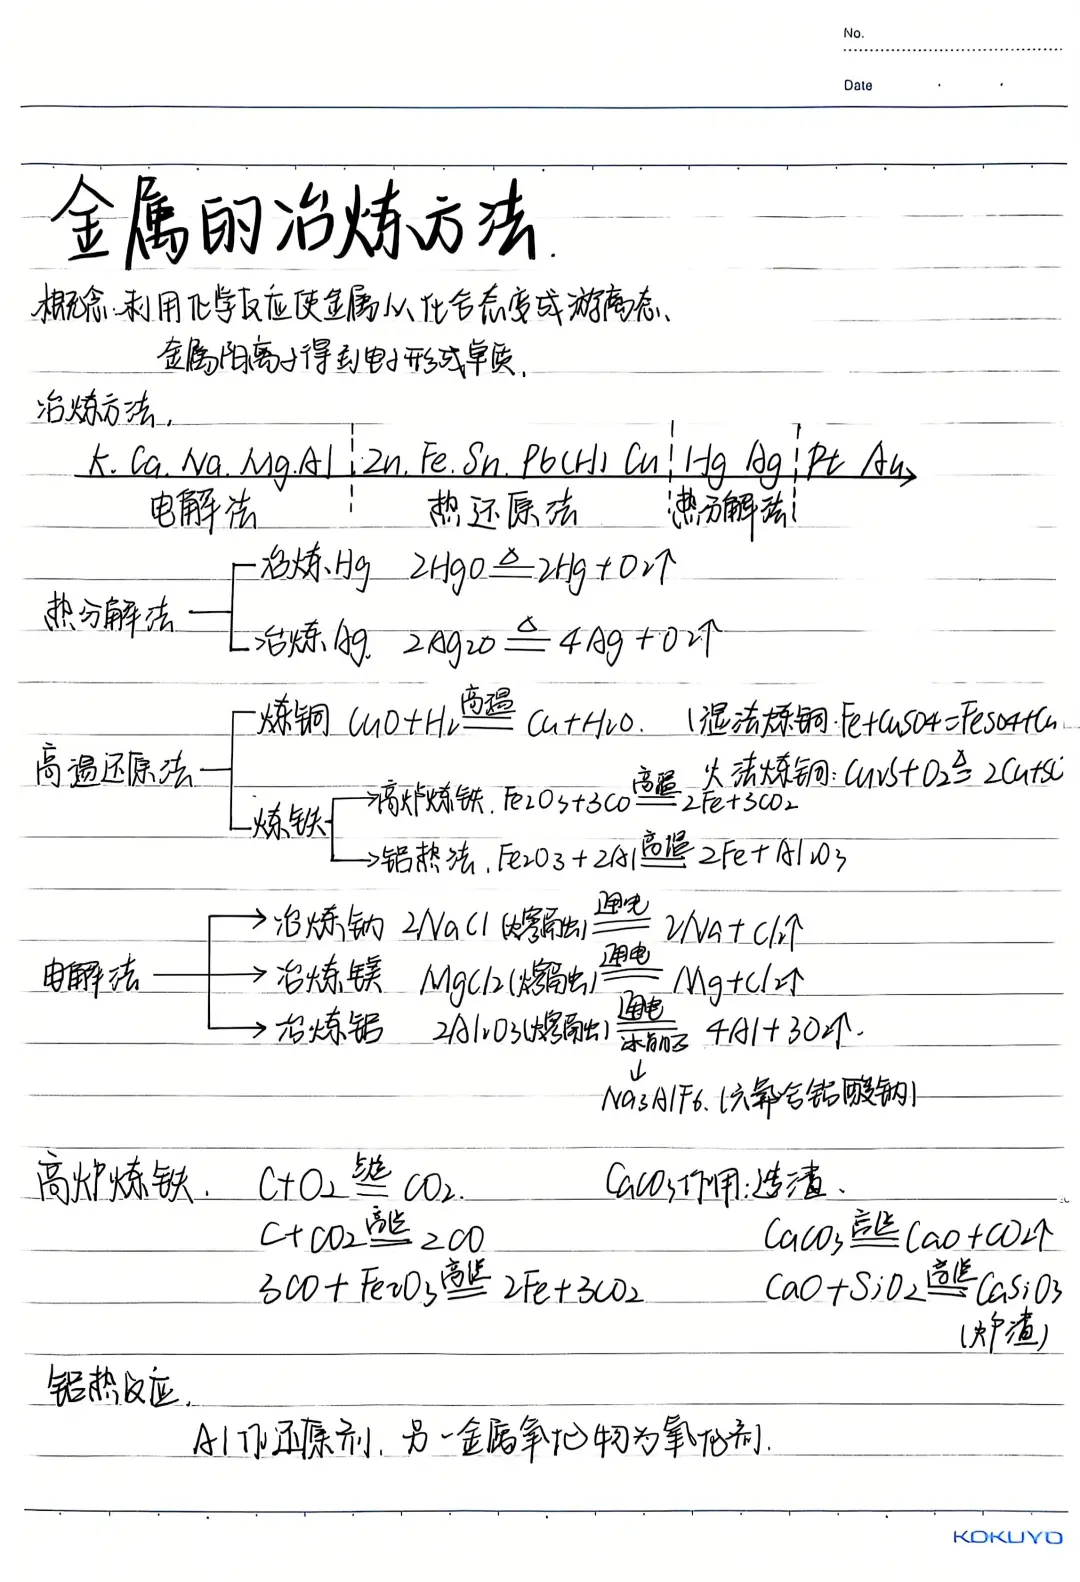 No.
Date
金属的冶炼方法.
概念:利用化学反应使金属从化合态变成游离态、
金属阳离子得到电子形成单质.
冶炼方法.
K. Ca. Na. Mg. Al Zn. Fe. Sn. Pb (H) Cu Hg Ag Pt Au
电解法 热还原法 热分解法
冶炼Hg 2HgO ≜ 2Hg+O2↑
热分解法
冶炼Ag. 2Ag2O ≜ 4Ag+O2↑
炼铜 CuO+H2 高温 Cu+H2O. (湿法炼铜:Fe+CuSO4=FeSO4+Cu
高温还原法 火法炼铜:Cu2S+O2 ≜ 2Cu+S
高炉炼铁. Fe2O3+3CO 高温 2Fe+3CO2
炼铁
铝热法. Fe2O3+2Al 高温 2Fe+Al2O3
冶炼钠 2NaCl(熔融) 通电 2Na+Cl2↑
电解法 冶炼镁 MgCl2(熔融) 通电 Mg+Cl2↑
冶炼铝 2Al2O3(熔融) 通电 冰晶石 4Al+3O2↑.
Na3AlF6. (六氟合铝酸钠)
高炉炼铁. C+O2 点燃 CO2. CaCO3作用:造渣.
C+CO2 高温 2CO CaCO3 高温 CaO+CO2↑
3CO+Fe2O3 高温 2Fe+3CO2 CaO+SiO2 高温 CaSiO3
(炉渣)
铝热反应.
Al作还原剂. 另一金属氧化物为氧化剂.
KOKUYO